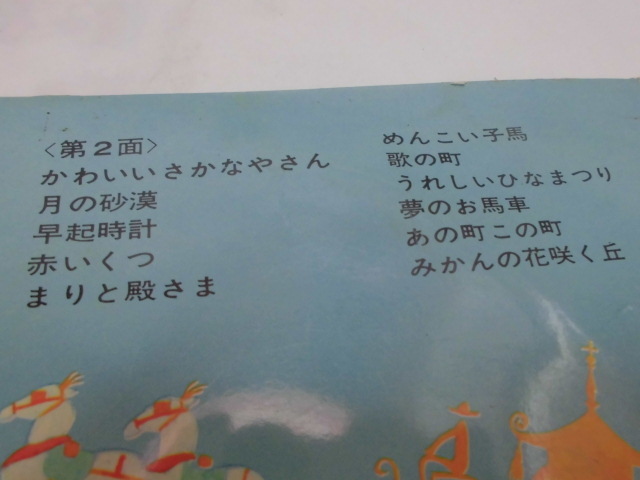 〈第2面〉
かわいいさかなやさん
月の砂漠
早起時計
赤いくつ
まりと殿さま
めんこい子馬
歌の町
うれしいひなまつり
夢のお馬車
あの町この町
みかんの花咲く丘